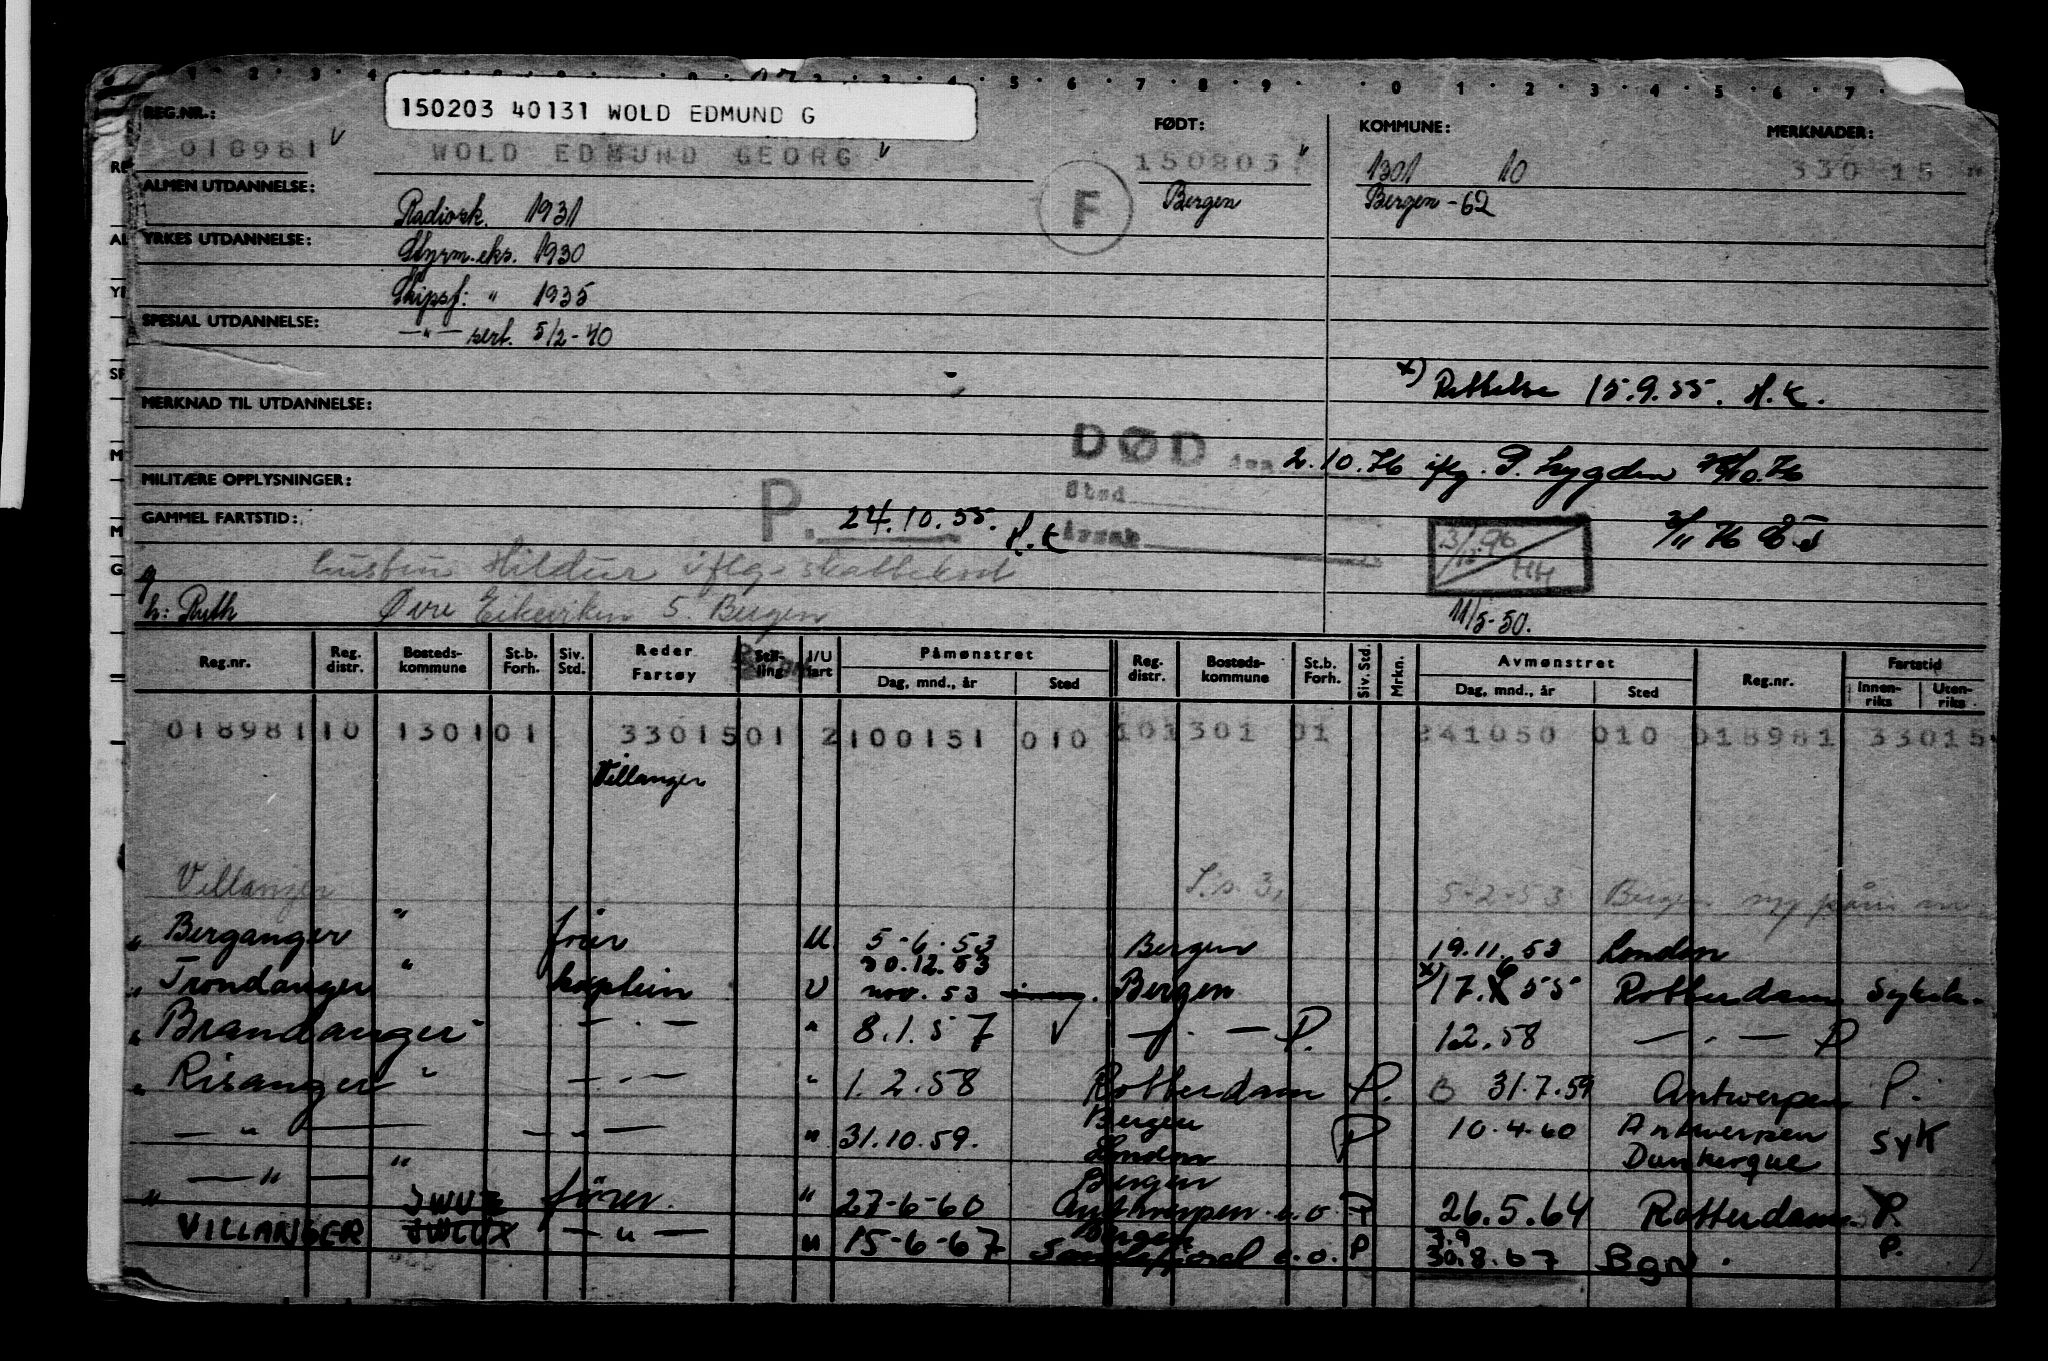 150203 40131 WOLD EDMUND G
REG.NR.: FØDT: KOMMUNE: MERKNADER:
018981 WOLD EDMUND GEORG 150803 1301 10 330 15
ALMEN UTDANNELSE: Radiosk. 1931 F Bergen Bergen - 62
YRKES UTDANNELSE: Styrm.eks. 1930
Skipsf: " 1935
SPESIAL UTDANNELSE: —"— sert. 5/2-40
x) Rettelse 15.9.55. H.K.
MERKNAD TIL UTDANNELSE:
DØD den 2.10.76 iflg. P. Lygden
MILITÆRE OPPLYSNINGER: Sted
GAMMEL FARTSTID: P. 24.10.55. H.K Årsak
hustru Hildur iflg. skattekort HH
h: Ruth Øvre Eikeviken 5. Bergen 11/5-50.
Reg.nr. Reg. distr. Bosteds-kommune St.b. Forh. Siv. Std. Reder Fartøy Stilling I/U fart Påmønstret Dag, mnd., år Sted Reg. distr. Bosteds-kommune St.b. Forh. Siv. Std. Mrkn. Avmønstret Dag, mnd., år Sted Reg.nr. Fartstid Innen-riks Uten-riks
018981 10 1301 01 33015 01 2 100151 010 10 1301 01 241050 010 018981 33015
Villanger
Villanger 5-2-53 Bergen ny påm
" Berganger " fører U 5-6-53 Bergen 19.11.53 London
30.12.53
" Trondanger " kaptein U nov. 53 Bergen x) 17.6 55 Rotterdam Sykeh.
" Brandanger - —.— " 8.1.57 —.— P. 12.58 —.— P
" Risanger " —.— " 1.2.58 Rotterdam P. 31.7.59 Antwerpen P.
Bergen
—"— —"— " 31.10.59. London P 10.4.60 Antwerpen Syk
Dunkerque
Bergen
" —"— " JWUZ fører. " 27-6-60 Antwerpen e.o. P 26.5.64 Rotterdam P.
Bergen 3.9
VILLANGER —"— " 15-6-67 e.o. P 30.8.67 Bgn. P.